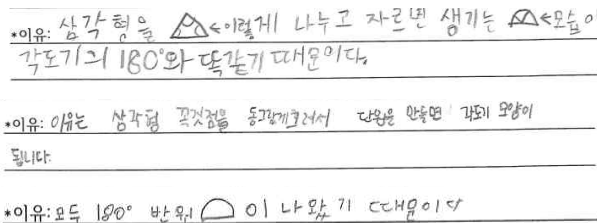 *이유: 삼각형을 ←이렇게 나누고 자르면 생기는 ←모습이
각도기의 180°와 똑같기 때문이다.
*이유: 이유는 삼각형 꼭짓점을 동그랗게 해서 만들면 각도기 모양이
됩니다.
*이유: 모두 180° 반원 이 나왔기 때문이다